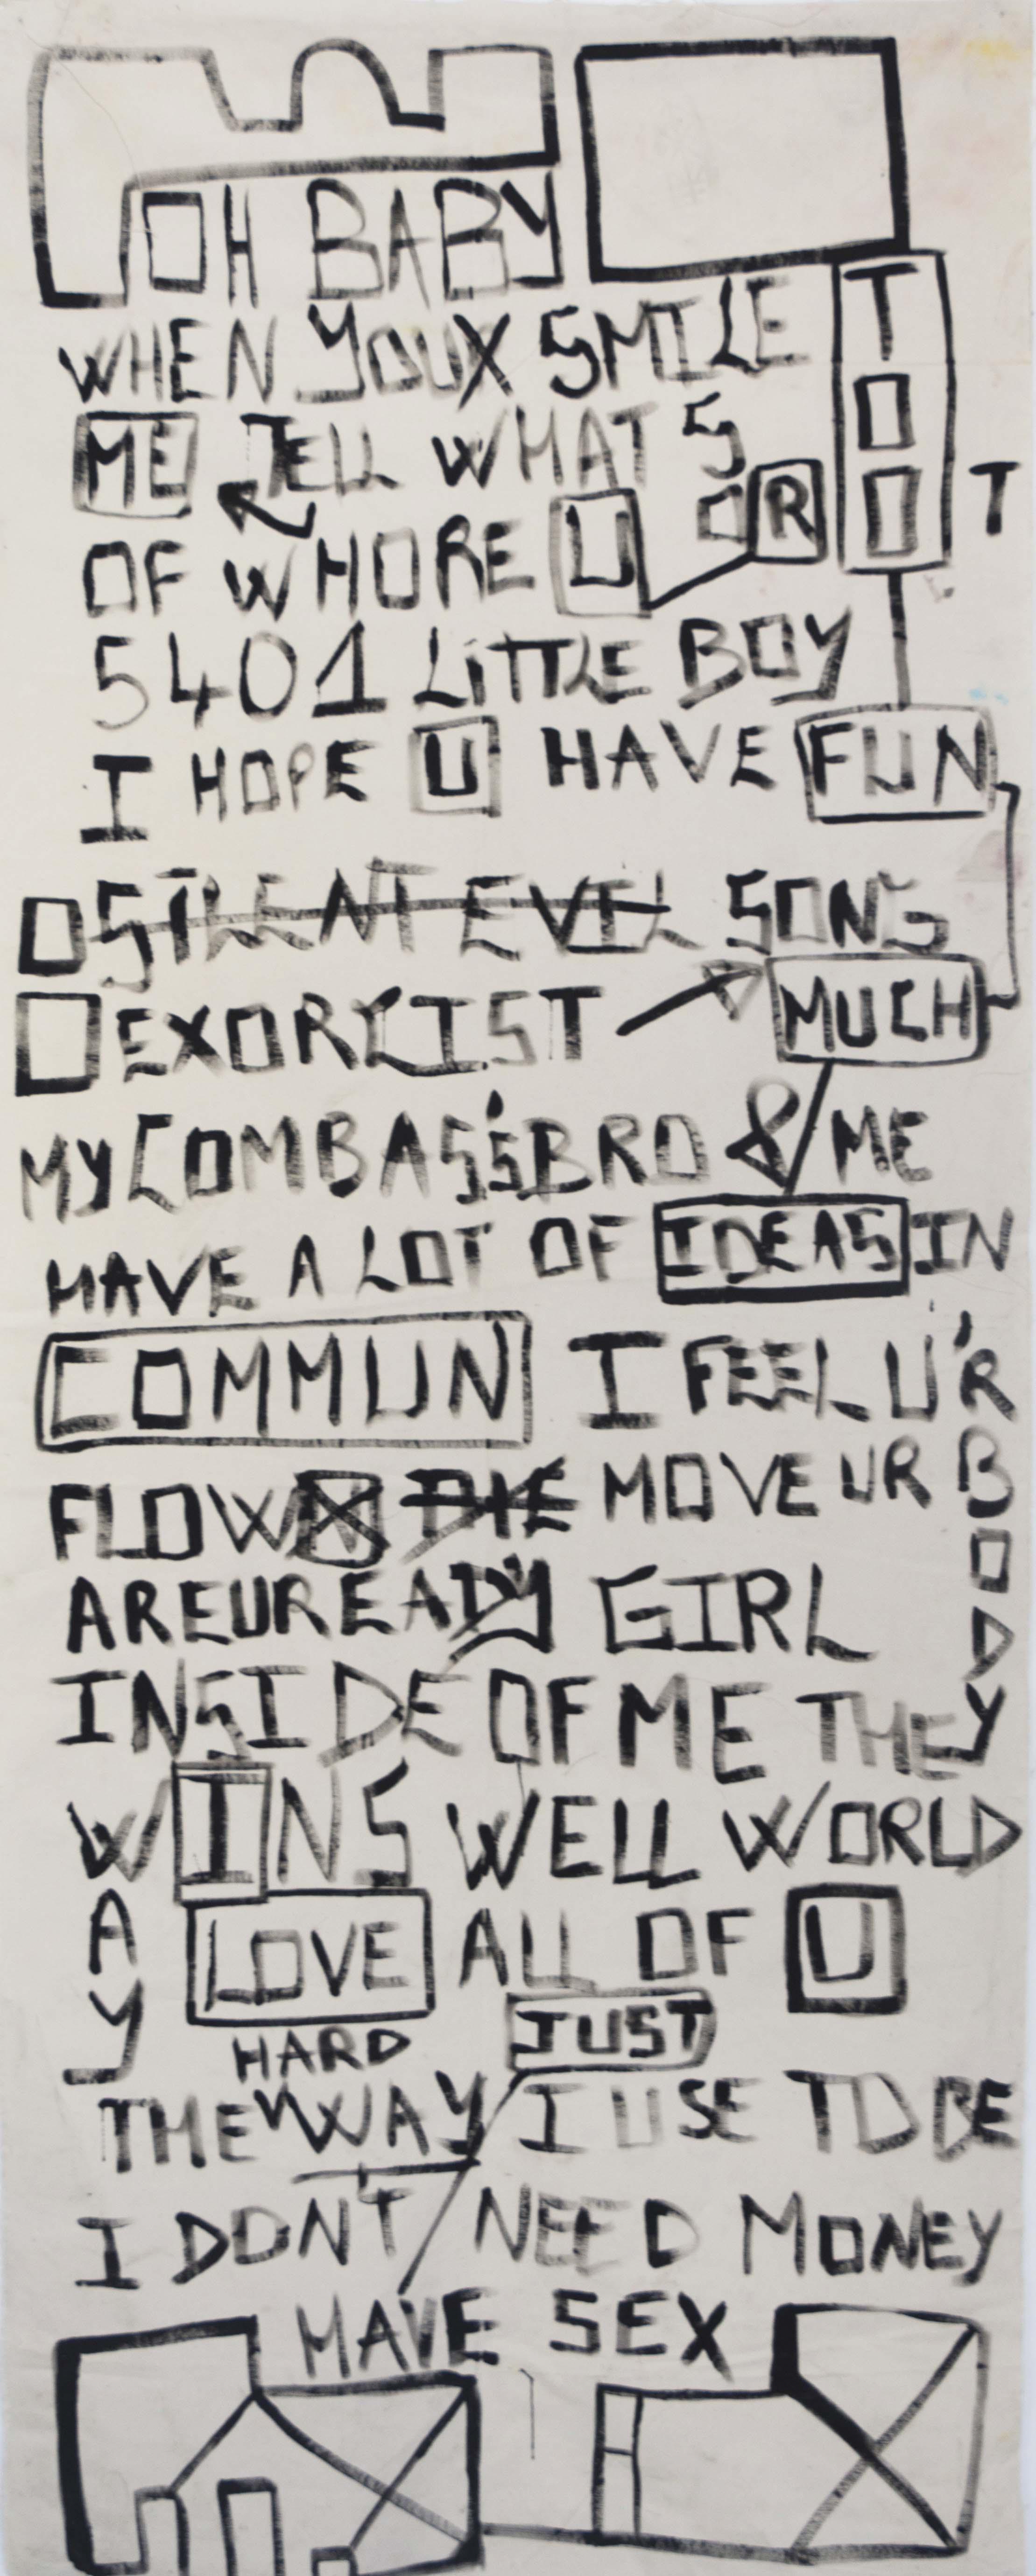 OH BABY
WHEN YOUX SMILE
ME TELL WHAT S
TOO T
OF WHORE U OR
5401 LiTTLE BOY
I HOPE U HAVE FUN
O SILENT EVIL SONG
EXORCIST MUCH
MY COMBASS'S BRO & ME
HAVE A LOT OF IDEAS IN
COMMUN I FEEL U'R
FLOW DIE MOVE UR BODY
ARE U READY GIRL
INSIDE OF ME THEY
WINS WELL WORLD
WAY LOVE ALL OF U
HARD JUST
THE WAY I USE TO BE
I DON'T NEED MONEY
HAVE SEX